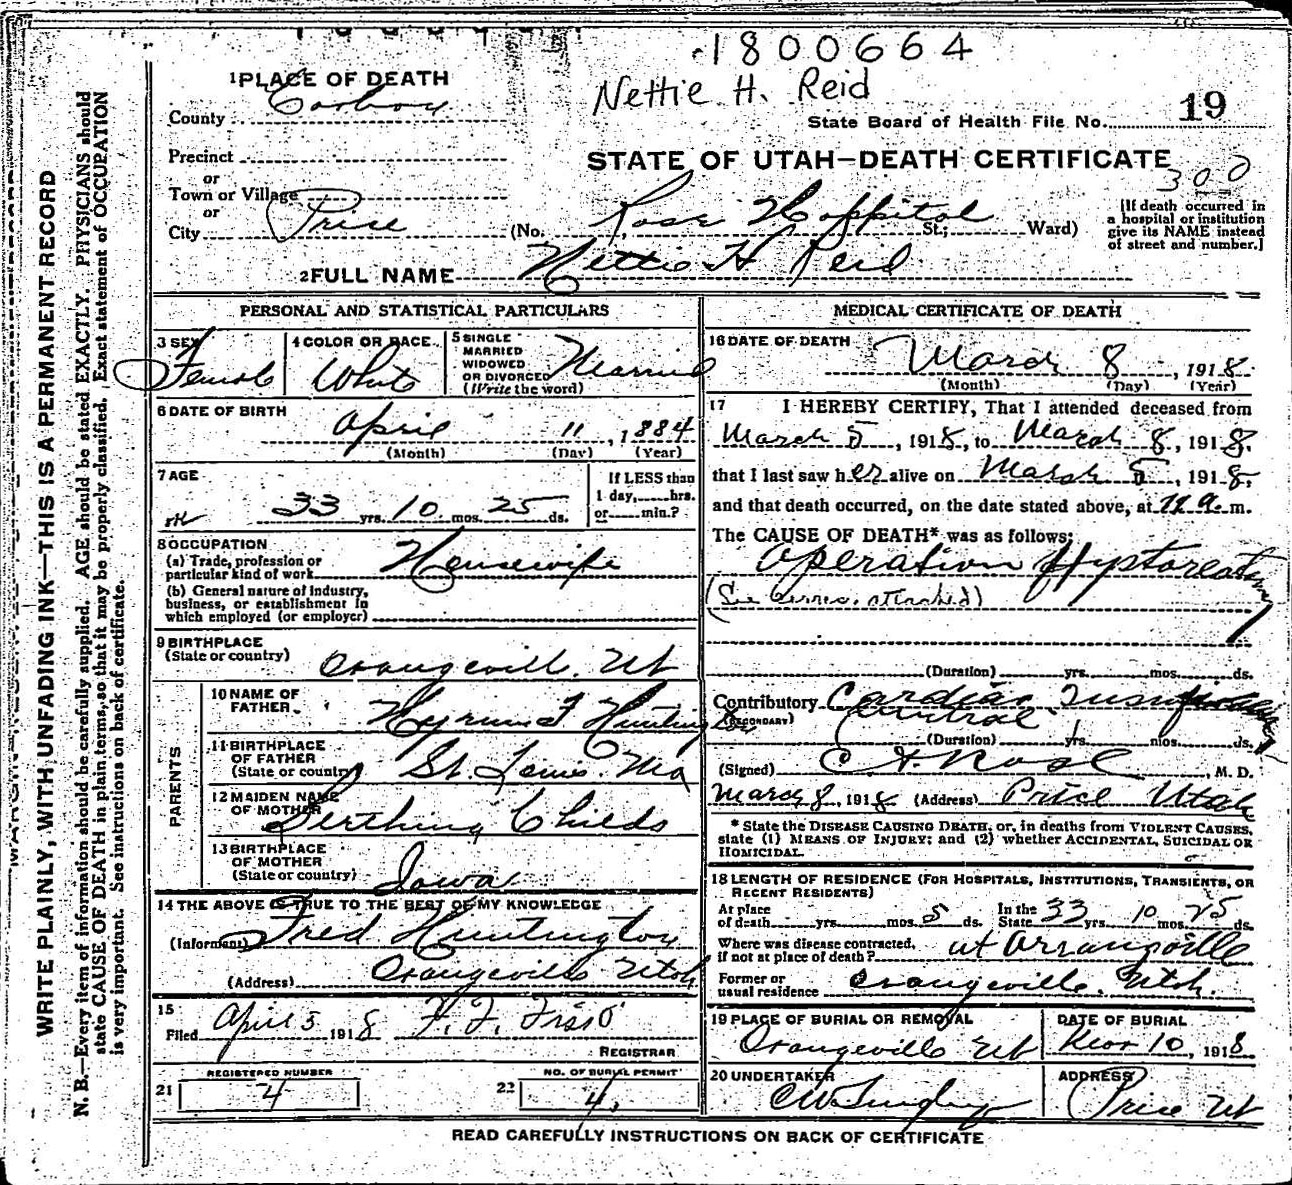 1800664
Nettie H. Reid
1 PLACE OF DEATH
County Carbon
State Board of Health File No. 19
Precinct
or
Town or Village
or
City Price
STATE OF UTAH—DEATH CERTIFICATE
300
(No. Rose Hospital St.; Ward)
[If death occurred in
a hospital or institution
give its NAME instead
of street and number.]
2 FULL NAME Nettie H Reid
PERSONAL AND STATISTICAL PARTICULARS
3 SEX Female
4 COLOR OR RACE White
5 SINGLE
MARRIED
WIDOWED
OR DIVORCED
(Write the word) Married
6 DATE OF BIRTH
April 11, 1884
(Month) (Day) (Year)
7 AGE
33 yrs. 10 mos. 25 ds.
If LESS than
1 day, hrs.
or min.?
8 OCCUPATION
(a) Trade, profession or
particular kind of work Housewife
(b) General nature of industry,
business, or establishment in
which employed (or employer)
9 BIRTHPLACE
(State or country) Orangeville, Ut
PARENTS
10 NAME OF
FATHER Hyrum F Huntington
11 BIRTHPLACE
OF FATHER
(State or country) St. Louis. Mo
12 MAIDEN NAME
OF MOTHER Childs
13 BIRTHPLACE
OF MOTHER
(State or country) Iowa
14 THE ABOVE IS TRUE TO THE BEST OF MY KNOWLEDGE
(Informant) Fred Huntington
(Address) Orangeville Utah
15
Filed April 3 1918
REGISTRAR
REGISTERED NUMBER
21 4
NO. OF BURIAL PERMIT
22 4,
MEDICAL CERTIFICATE OF DEATH
16 DATE OF DEATH
March 8, 1918
(Month) (Day) (Year)
17 I HEREBY CERTIFY, That I attended deceased from
March 5, 1918, to March 8, 1918,
that I last saw her alive on March 5, 1918,
and that death occurred, on the date stated above, at m.
The CAUSE OF DEATH* was as follows:
Operation Hystorectomy
(See attached)
(Duration) yrs. mos. ds.
Contributory Cardiac
(SECONDARY)
(Duration) yrs. mos. ds.
(Signed) M. D.
March 8, 1918 (Address) Price Utah
* State the DISEASE CAUSING DEATH, or, in deaths from VIOLENT CAUSES,
state (1) MEANS OF INJURY; and (2) whether ACCIDENTAL, SUICIDAL OR
HOMICIDAL.
18 LENGTH OF RESIDENCE (FOR HOSPITALS, INSTITUTIONS, TRANSIENTS, OR
RECENT RESIDENTS)
At place
of death yrs. mos. 5 ds. In the
State 33 yrs. 10 mos. 25 ds.
Where was disease contracted,
if not at place of death? at
Former or
usual residence Orangeville, Utah.
19 PLACE OF BURIAL OR REMOVAL
Orangeville Ut
DATE OF BURIAL
10, 1918
20 UNDERTAKER
ADDRESS
Price Ut
READ CAREFULLY INSTRUCTIONS ON BACK OF CERTIFICATE
WRITE PLAINLY, WITH UNFADING INK—THIS IS A PERMANENT RECORD
N. B.—Every item of information should be carefully supplied. AGE should be stated EXACTLY. PHYSICIANS should
state CAUSE OF DEATH in plain terms, so that it may be properly classified. Exact statement of OCCUPATION
is very important. See instructions on back of certificate.